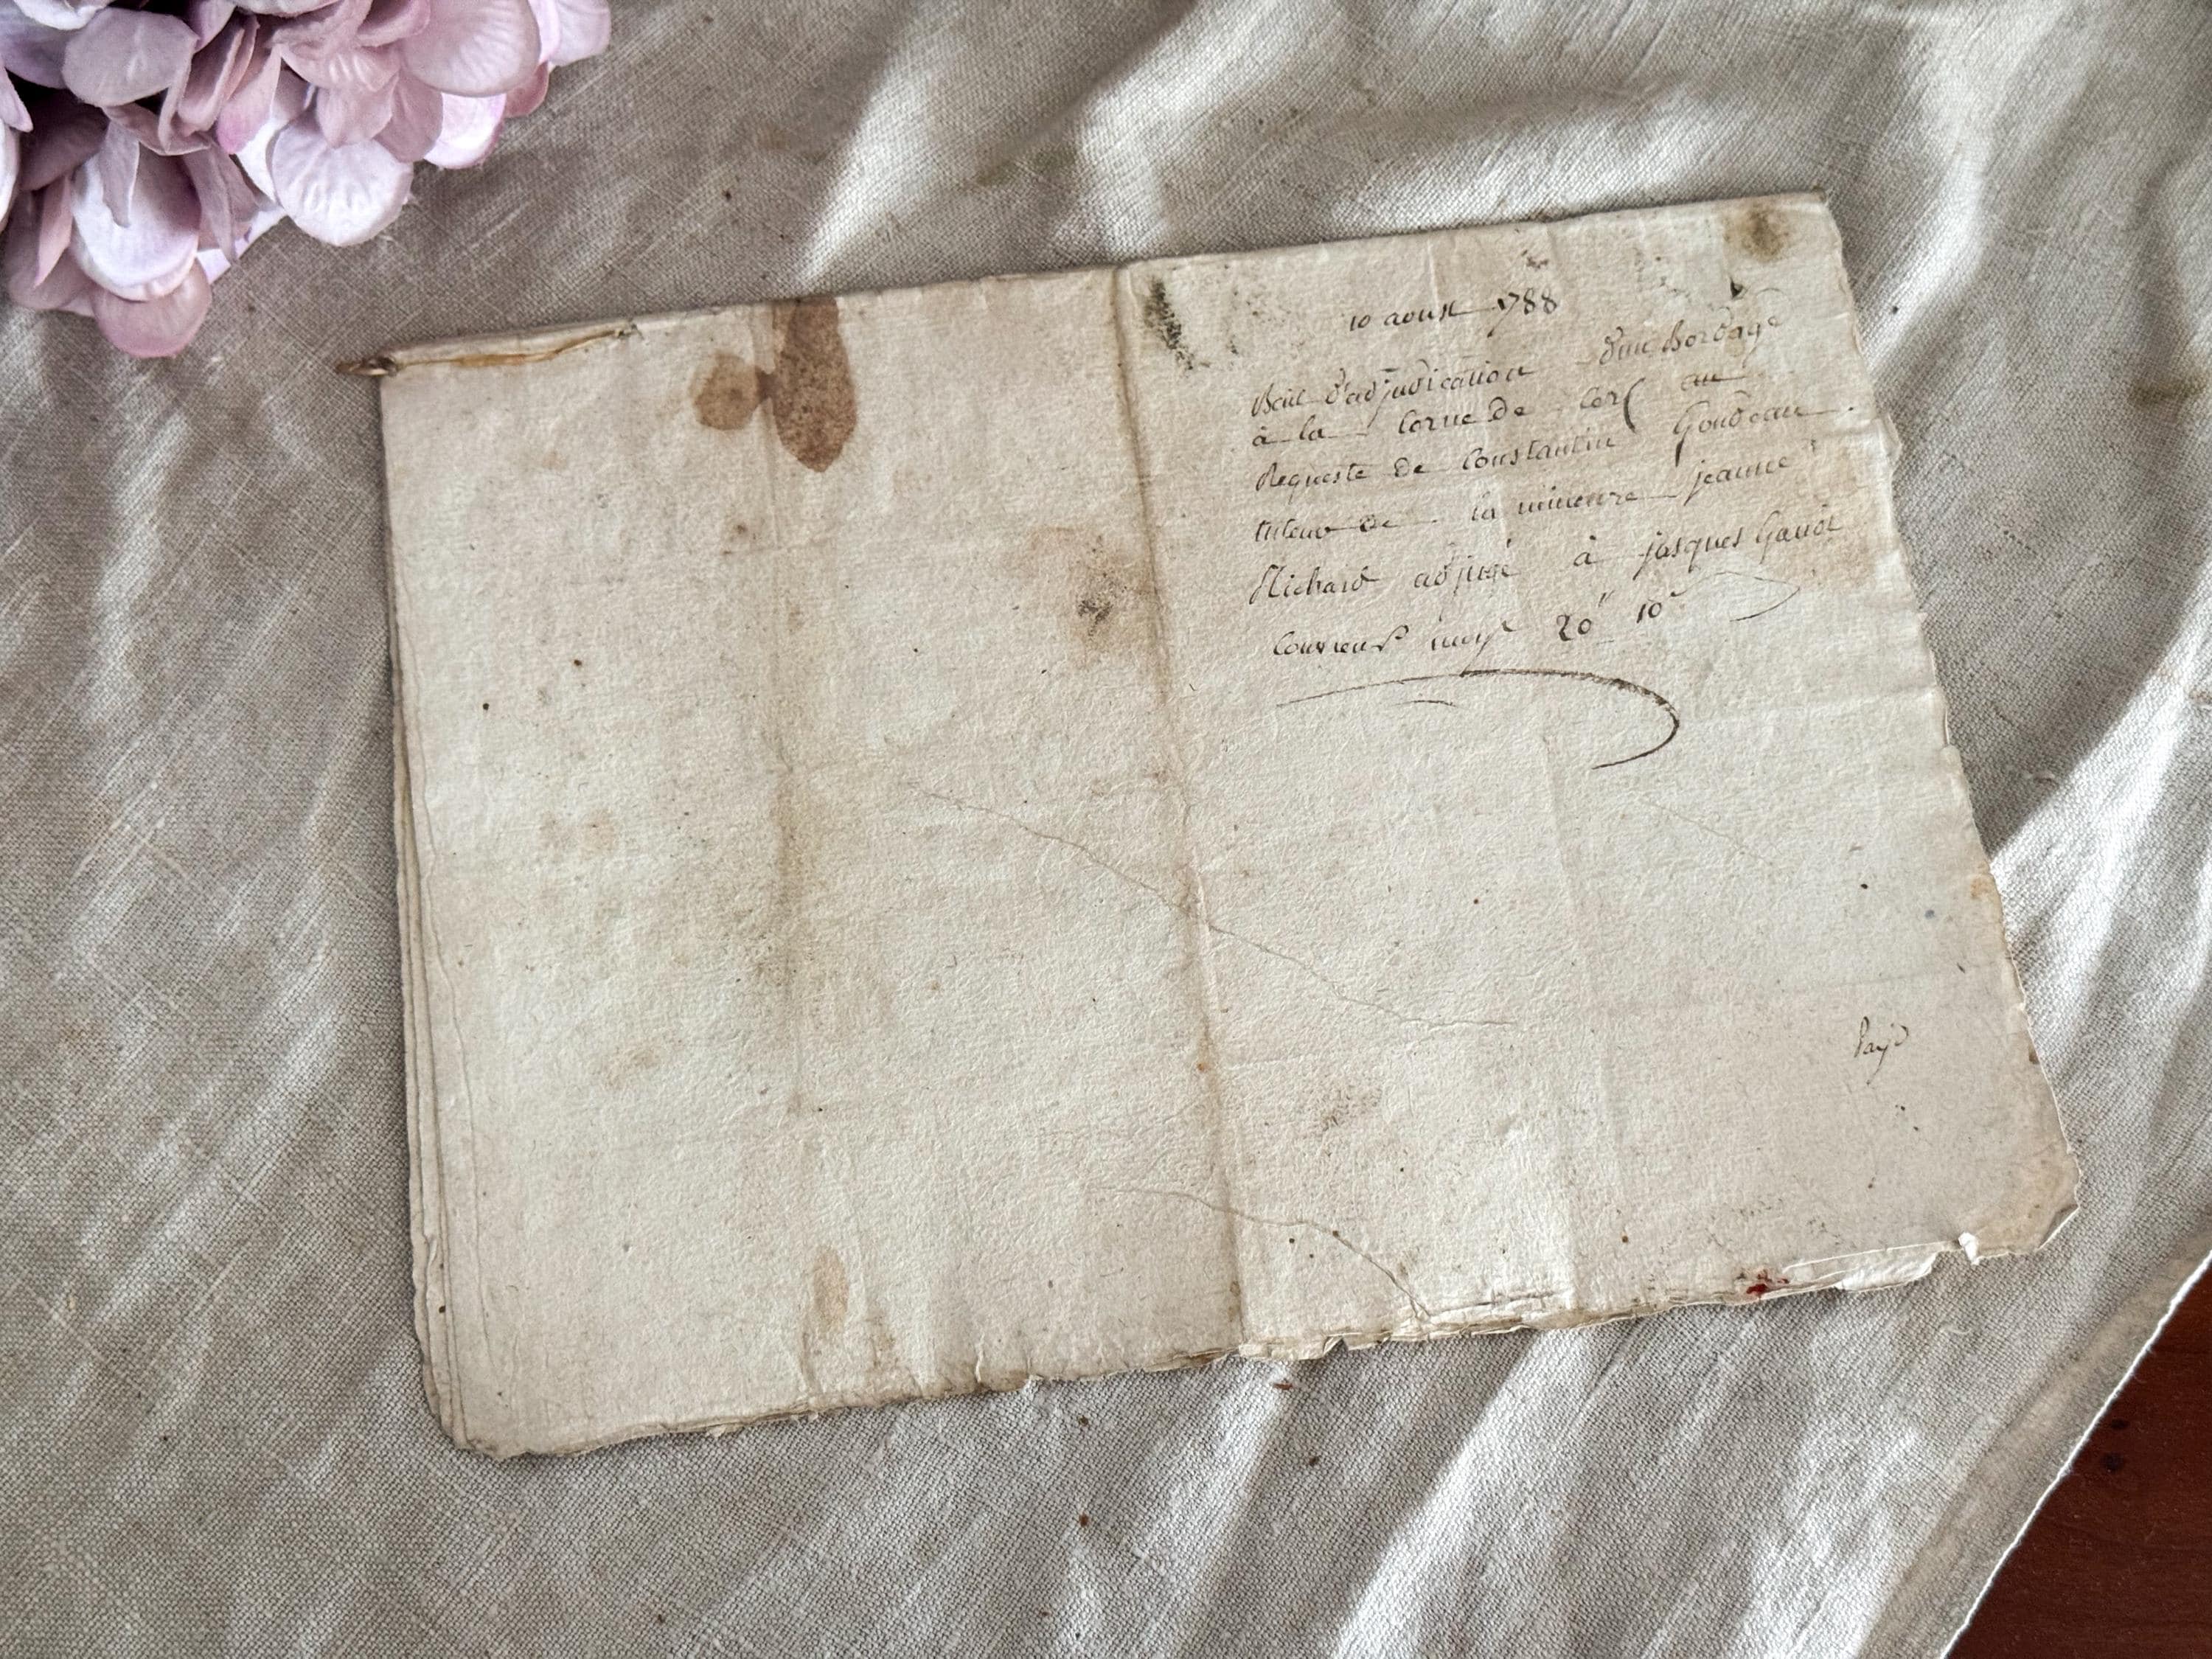 10 aoust 1788
Bail d'adjudication d'un Bordage
à la Corne de Cerf au
Requeste de Constantin Goudeau
tuteur de la mineure jeanne
Richard adjugé à jasques Gaudt
20# 10s
Payé